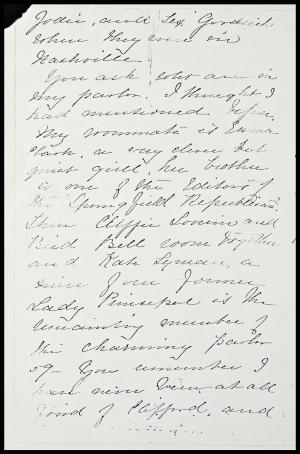 Jodie, and Lex Goodrich
when they were in
Nashville.
You ask who are in
my parlor. I thought I
had mentioned before,
My roommate is Emma
a very clever but
quiet girl her brother
is one of the Editors of
the Springfield Republican,
Then Cliffie and
Bird Bell room together
and Kate Lyman, a
niece of our former
Lady Principal is the
remaining member of
the charming parlor
59 - You remember I
have never been at all
fond of Clifford, and